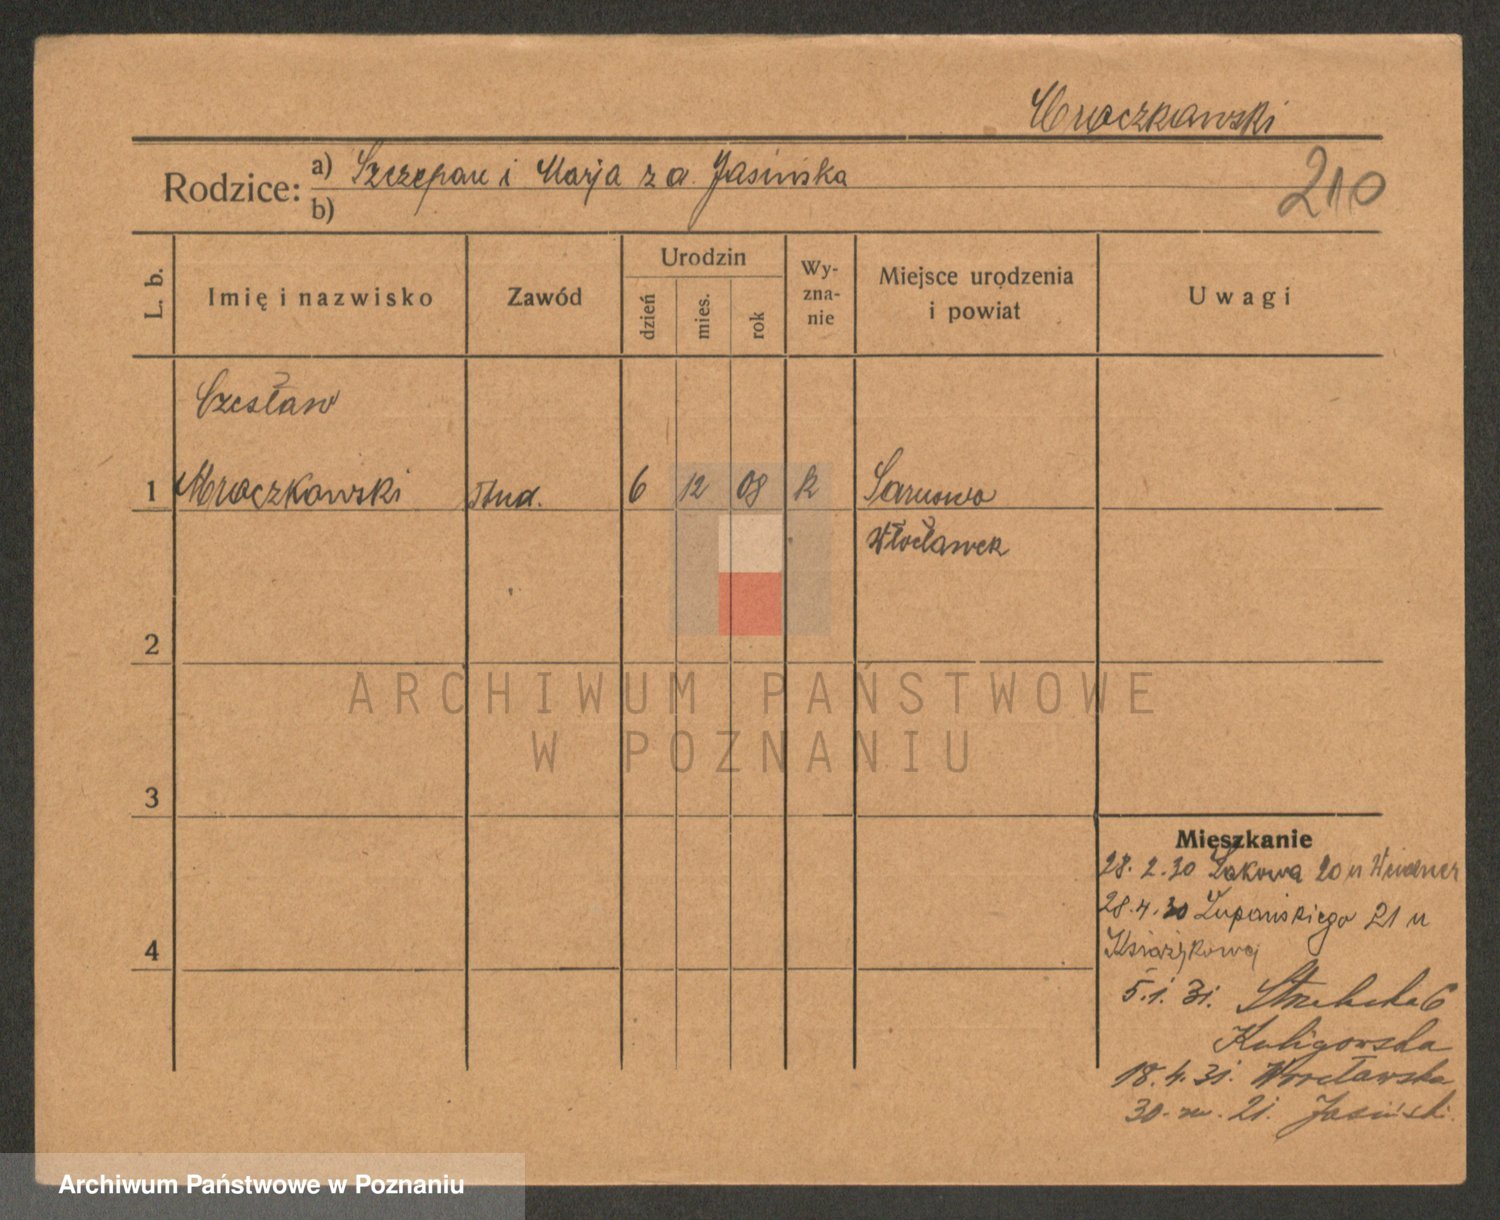 Mroczkowski
Rodzice: a) Szczepan i Marja z d. Jasińska
b)
210
L. b.
Imię i nazwisko
Zawód
Urodzin
dzień
mies.
rok
Wy-
zna-
nie
Miejsce urodzenia
i powiat
Uwagi
Czesław
1 Mroczkowski stud. 6 12 08 k
Włocławek
2
3
4
Mieszkanie
28. 2. 30 Łąkowa 20 u
28. 4. 30 Łupańskiego 21 u
5. 1. 31. Strzelecka 6
Kaligowska
18. 4. 31. Wrocławska
30. Jasiński
ARCHIWUM PAŃSTWOWE
W POZNANIU
Archiwum Państwowe w Poznaniu